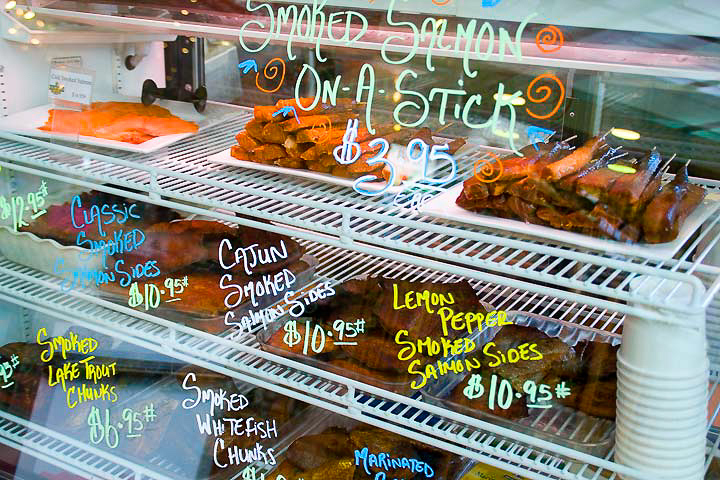 Smoked Salmon
On-A-Stick
$3.95
Cold Smoked Salmon
$12.95#
Classic
Smoked
Salmon Sides
$10.95#
Cajun
Smoked
Salmon Sides
$10.95#
Lemon
Pepper
Smoked
Salmon Sides
$10.95#
Smoked
Lake Trout
Chunks
$6.95#
Smoked
Whitefish
Chunks
Marinated